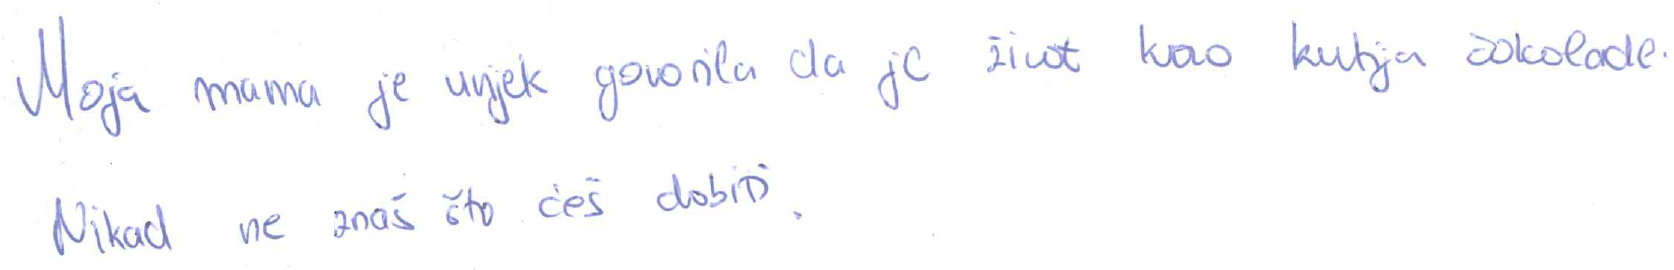 Moja mama je uvjek govorila da je život kao kutija čokolade.
Nikad ne znaš što ćeš dobiti.